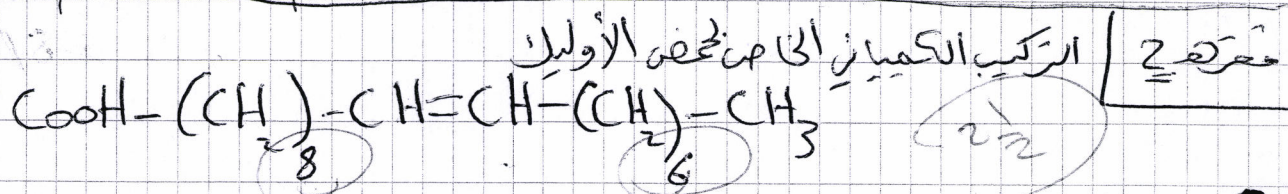 فقرة ج / التركيب الكيميائي الخاص لحمض الأوليك
COOH-(CH2)8-CH=CH-(CH2)6-CH3
2 1/2